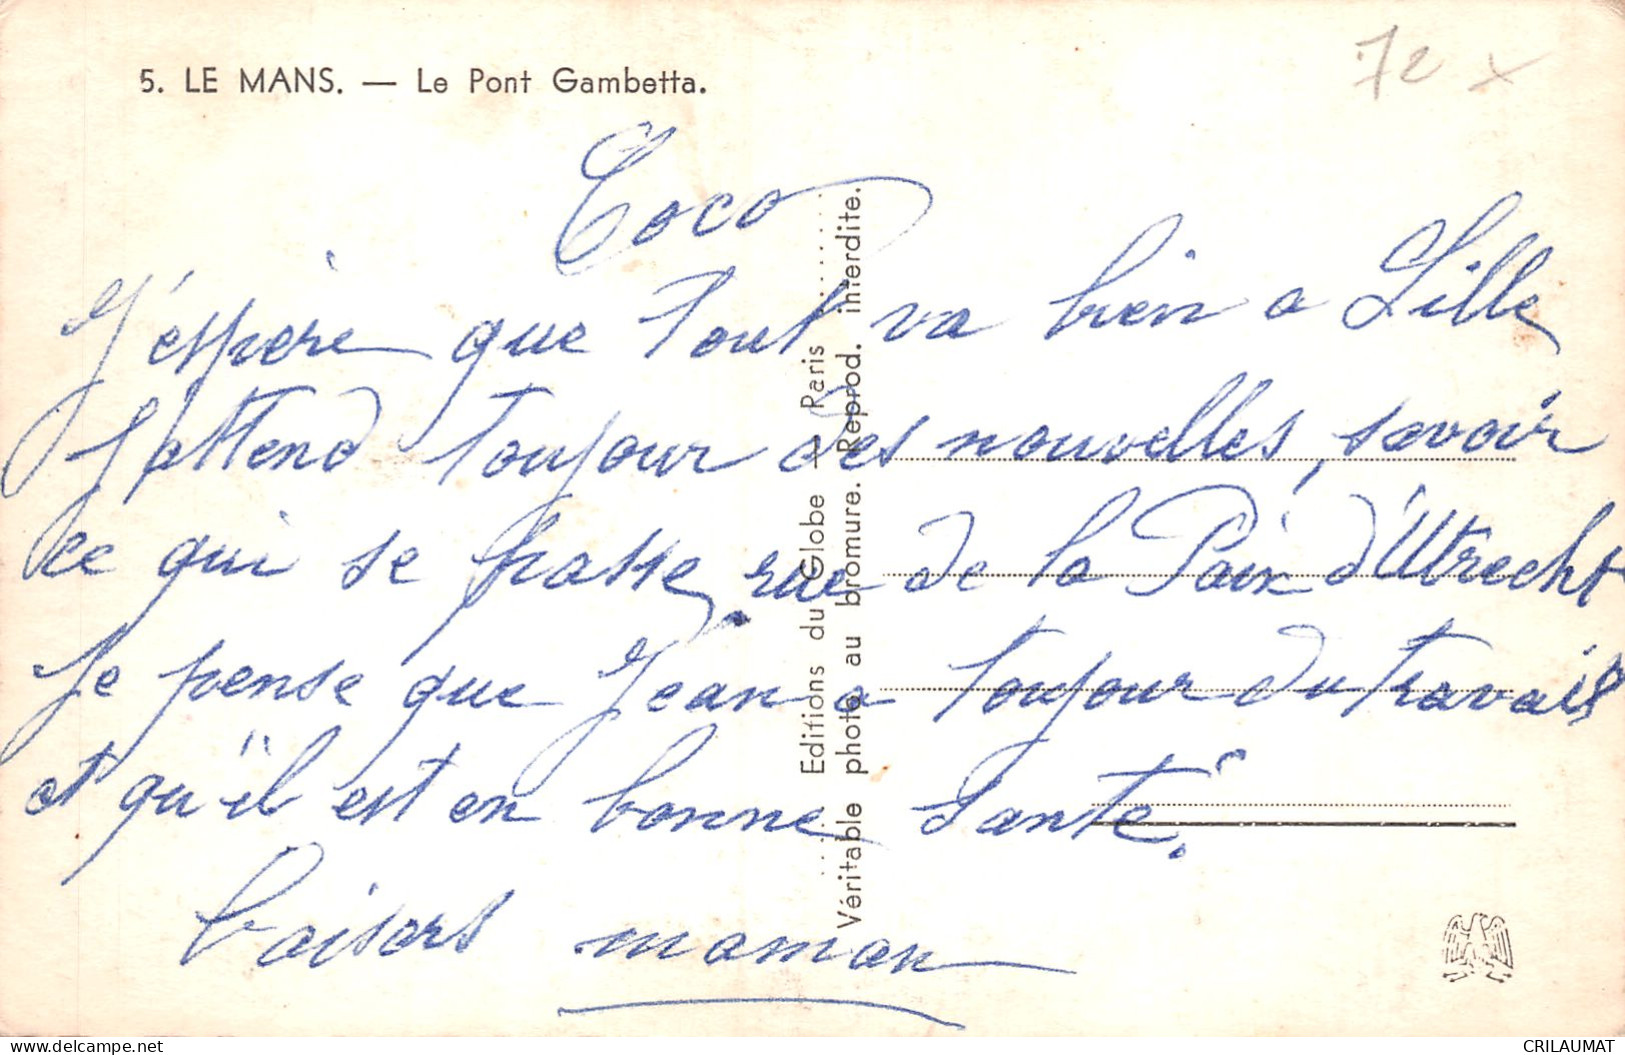 5. LE MANS. — Le Pont Gambetta.
72 x
Coco
J'éspere que tout va bien a Lille
J'attend toujour des nouvelles, savoir
ce qui se passe rue de la Paix d'Utrecht
Je pense que Jean a toujour du travail
et qu'il est en bonne santé.
baisers maman
Editions du Globe — Paris
Véritable photo au bromure. Reprod. interdite.
delcampe.net
CRILAUMAT